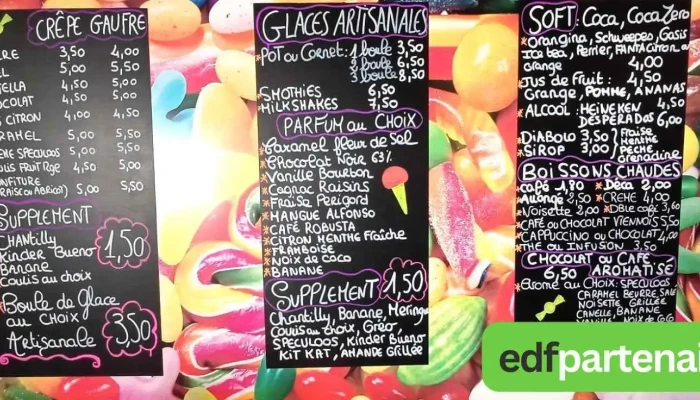 CRÊPE GAUFRE
3,50 4,00
5,00 5,50
4,50 5,00
4,50 5,00
CITRON 4,00 4,50
5,00 5,50
SPECULOOS 5,00 5,50
4,50 5,00
5,00 5,50
SUPPLEMENT
Chantilly
Kinder Bueno
Banane
Coulis au choix
1,50
Boule de Glace
au CHOIX
Artisanale
3,50
GLACES ARTISANALES
Pot ou Cornet: 1 boule 3,50
2 boule 6,50
3 boule 8,50
SMOTHIES 6,50
MILKSHAKES 7,50
PARFUM au CHOIX
Caramel fleur de Sel
Chocolat Noir 63%
Vanille Bourbon
Cognac Raisins
Fraise Perigord
MANGUE ALFONSO
CAFÉ ROBUSTA
CITRON MENTHE FRAÎCHE
FRAMBOISE
NOIX de COCO
BANANE
SUPPLEMENT 1,50
Chantilly, Banane, Meringue
Coulis au choix, Oréo,
SPECULOOS, Kinder Bueno
KIT KAT, AMANDE GRILLÉE
SOFT: Coca, Coca Zero
Orangina, Schweepes, Oasis
Ice tea, Perrier, FANTA Citron ou
Orange 4,00
Jus de Fruit: 4,50
Orange, POMME, ANANAS
ALCOOL: HEINEKEN 4,50
DESPERADOS 6,00
DIABOLO 3,50 Fraise
SIROP 3,00 Menthe
PÊCHE
Grenadine
BOISSONS CHAUDES
Café 1,80 Déca 2,00
Allongé 2,50 CRÈME 4,00
Noisette 2,00 DBLe café 3,60
CAFÉ ou CHOCOLAT VIENNOIS 5,50
CAPPUCCINO ou CHOCOLAT 4,00
THÉ ou INFUSION 3,50
CHOCOLAT ou CAFÉ
6,50 AROMATISE
Arome au Choix: SPECULOOS
CARAMEL BEURRE SALÉ
NOISETTE GRILLÉE
CANELLE, BANANE
VANILLE, NOIX de COCO
edfpartenai